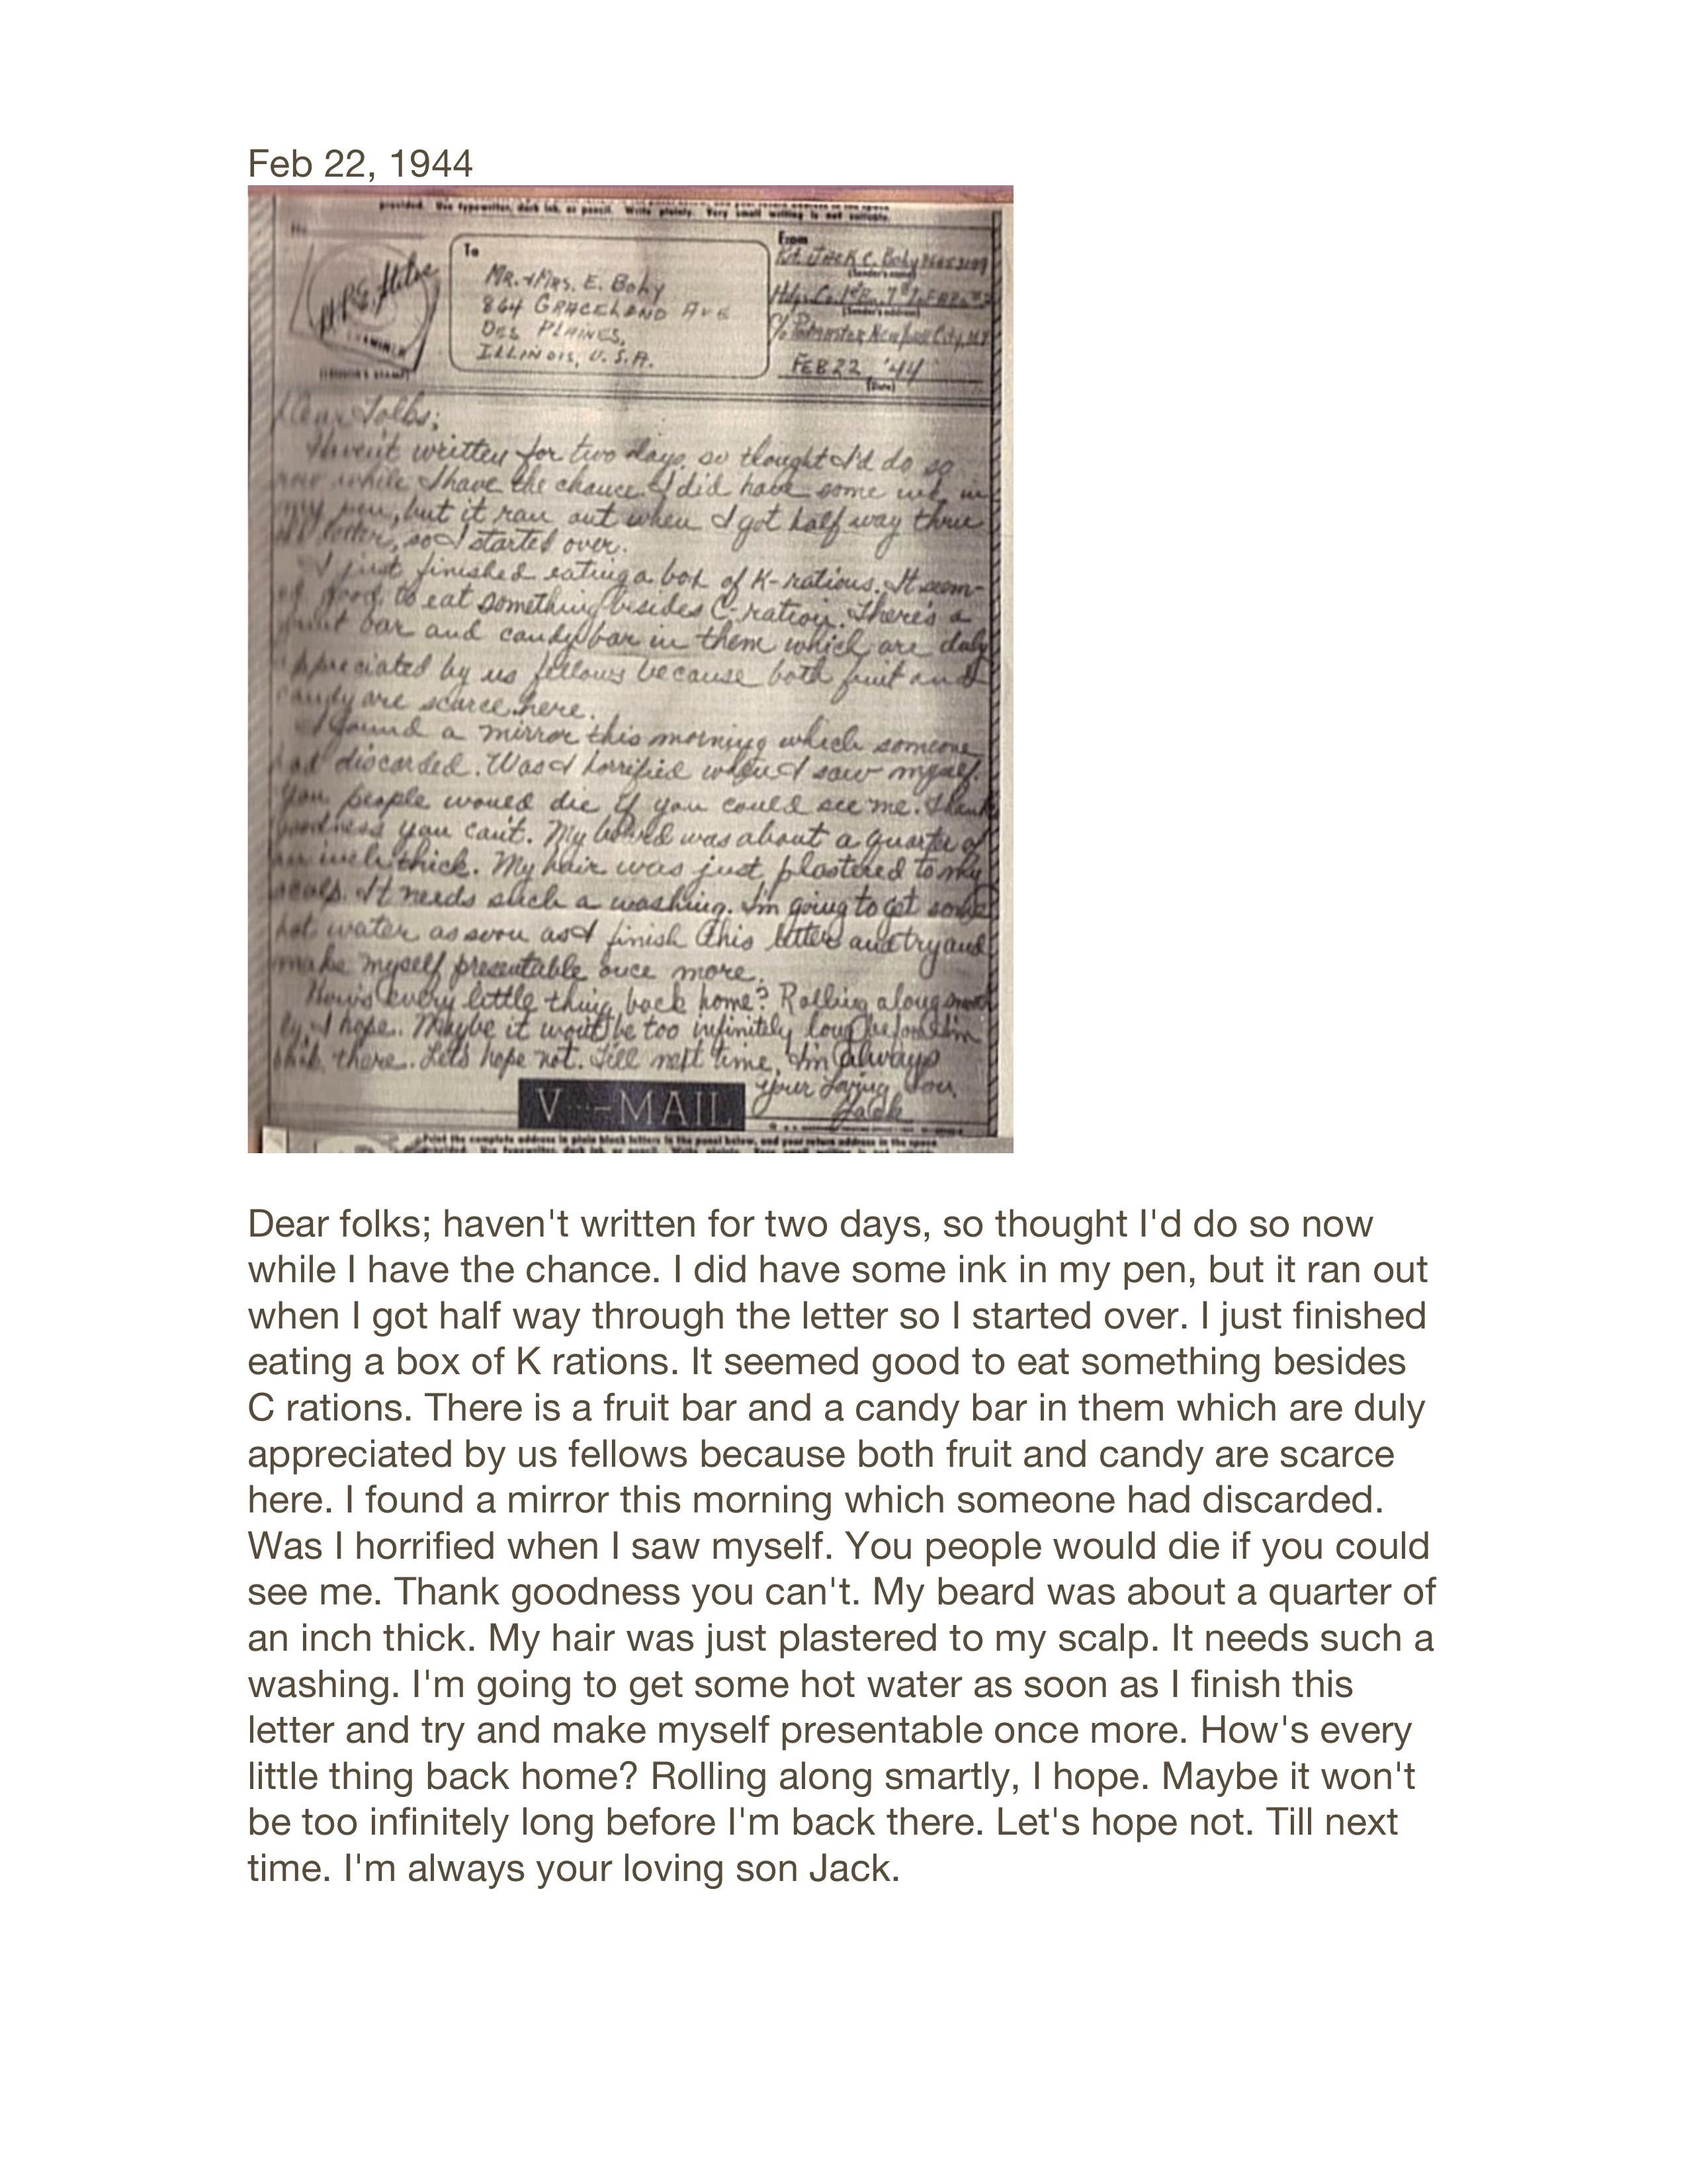 Feb 22, 1944
provided. Use typewriter, dark ink, or pencil. Write plainly. Very small writing is not suitable.
No.
To
From
Mr. + Mrs. E. Bohy
Pvt. Jack C. Bohy
(Sender's name)
864 Graceland Ave
Des Plaines,
(Sender's address)
Illinois, U.S.A.
c/o Postmaster New York City, N.Y.
Feb 22 '44
(Date)
(CENSOR'S STAMP)
Dear Folks;
Haven't written for two days, so thought I'd do so
now while I have the chance. I did have some ink in
my pen, but it ran out when I got half way thru
letter, so I started over.
I just finished eating a box of K-rations. It seem-
ed good to eat something besides C-ration. There's a
fruit bar and candy bar in them which are duly
appreciated by us fellows because both fruit and
candy are scarce here.
I found a mirror this morning which someone
had discarded. Was I horrified when I saw myself.
You people would die if you could see me. Thank
goodness you can't. My beard was about a quarter of
an inch thick. My hair was just plastered to my
scalp. It needs such a washing. I'm going to get some
hot water as soon as I finish this letter and try and
make myself presentable once more.
How's every little thing back home? Rolling along
ly, I hope. Maybe it won't be too infinitely long before I'm
back there. Let's hope not. Till next time, I'm always
Your Loving Son,
Jack
V-MAIL
Print the complete address in plain block letters in the panel below, and your return address in the space
provided. Use typewriter, dark ink, or pencil. Write plainly. Very small writing is not suitable.
Dear folks; haven't written for two days, so thought I'd do so now
while I have the chance. I did have some ink in my pen, but it ran out
when I got half way through the letter so I started over. I just finished
eating a box of K rations. It seemed good to eat something besides
C rations. There is a fruit bar and a candy bar in them which are duly
appreciated by us fellows because both fruit and candy are scarce
here. I found a mirror this morning which someone had discarded.
Was I horrified when I saw myself. You people would die if you could
see me. Thank goodness you can't. My beard was about a quarter of
an inch thick. My hair was just plastered to my scalp. It needs such a
washing. I'm going to get some hot water as soon as I finish this
letter and try and make myself presentable once more. How's every
little thing back home? Rolling along smartly, I hope. Maybe it won't
be too infinitely long before I'm back there. Let's hope not. Till next
time. I'm always your loving son Jack.